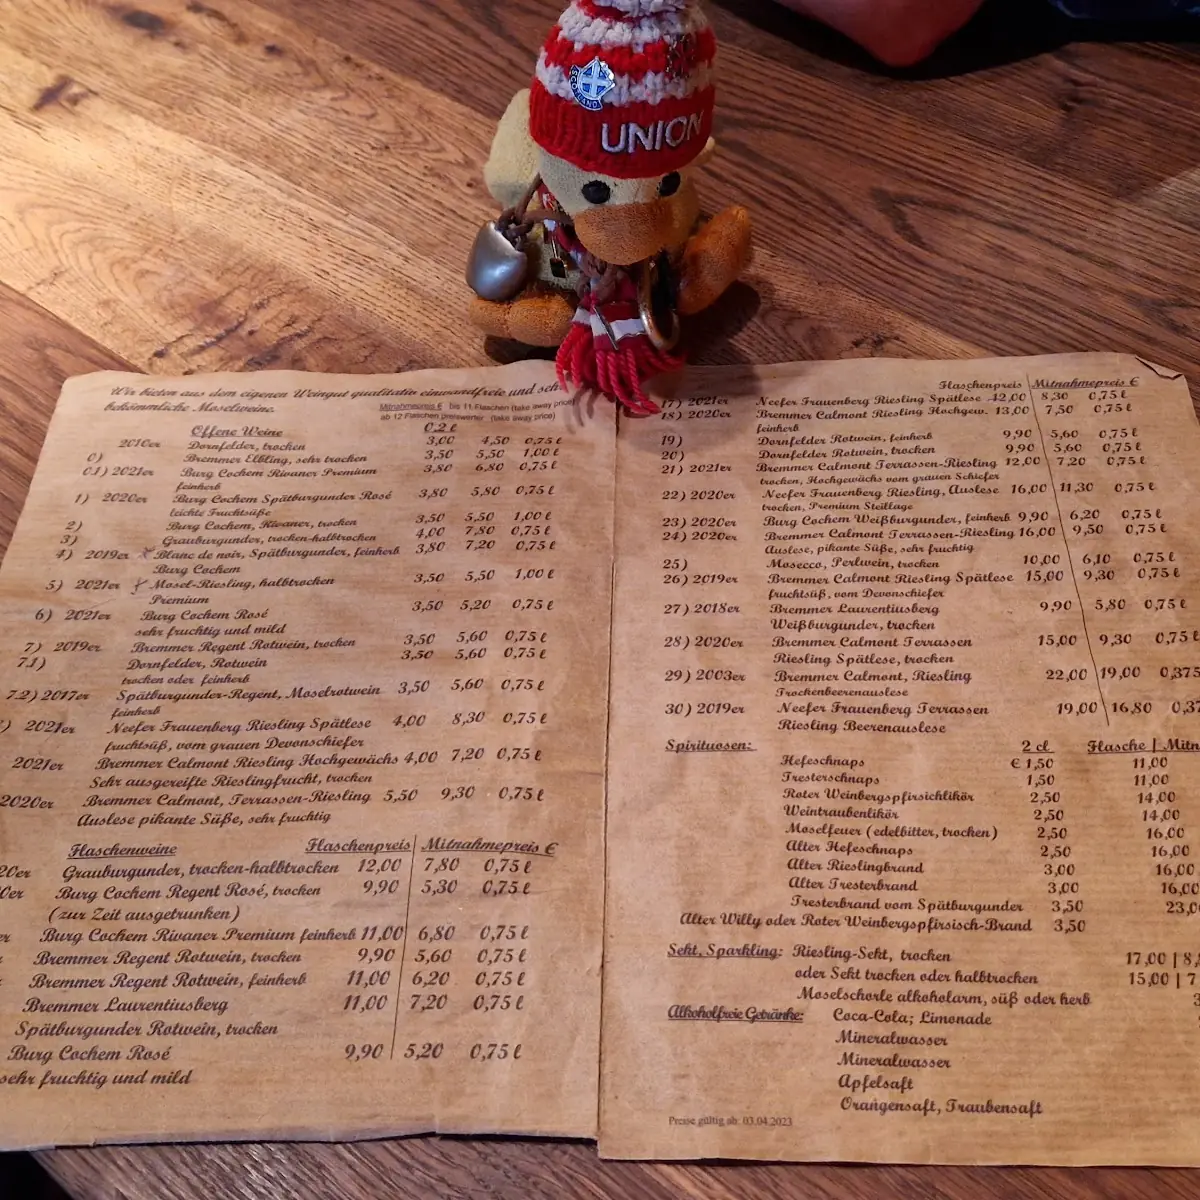 SCOTLAND
UNION
Wir bieten aus dem eigenen Weingut qualitativ einwandfreie und
bekömmliche Moselweine.
Mitnahmepreis € bis 11 Flaschen (take away price)
ab 12 Flaschen preiswerter (take away price)
Offene Weine 0,2 ℓ
2010er Dornfelder, trocken 3,00 4,50 0,75 ℓ
0) Bremmer Elbling, sehr trocken 3,50 5,50 1,00 ℓ
0.1) 2021er Burg Cochem Rivaner Premium 3,80 6,80 0,75 ℓ
feinherb
1) 2020er Burg Cochem Spätburgunder Rosé 3,80 5,80 0,75 ℓ
leichte Fruchtsüße
2) Burg Cochem, Rivaner, trocken 3,50 5,50 1,00 ℓ
3) Grauburgunder, trocken-halbtrocken 4,00 7,80 0,75 ℓ
4) 2019er Blanc de noir, Spätburgunder, feinherb 3,80 7,20 0,75 ℓ
Burg Cochem
5) 2021er Mosel-Riesling, halbtrocken 3,50 5,50 1,00 ℓ
Premium
6) 2021er Burg Cochem Rosé 3,50 5,20 0,75 ℓ
sehr fruchtig und mild
7) 2019er Bremmer Regent Rotwein, trocken 3,50 5,60 0,75 ℓ
7.1) Dornfelder, Rotwein 3,50 5,60 0,75 ℓ
trocken oder feinherb
7.2) 2017er Spätburgunder-Regent, Moselrotwein 3,50 5,60 0,75 ℓ
feinherb
) 2021er Neefer Frauenberg Riesling Spätlese 4,00 8,30 0,75 ℓ
fruchtsüß, vom grauen Devonschiefer
2021er Bremmer Calmont Riesling Hochgewächs 4,00 7,20 0,75 ℓ
Sehr ausgereifte Rieslingfrucht, trocken
2020er Bremmer Calmont, Terrassen-Riesling 5,50 9,30 0,75 ℓ
Auslese pikante Süße, sehr fruchtig
Flaschenweine Flaschenpreis Mitnahmepreis €
20er Grauburgunder, trocken-halbtrocken 12,00 7,80 0,75 ℓ
0er Burg Cochem Regent Rosé, trocken 9,90 5,30 0,75 ℓ
(zur Zeit ausgetrunken)
er Burg Cochem Rivaner Premium feinherb 11,00 6,80 0,75 ℓ
Bremmer Regent Rotwein, trocken 9,90 5,60 0,75 ℓ
Bremmer Regent Rotwein, feinherb 11,00 6,20 0,75 ℓ
Bremmer Laurentiusberg 11,00 7,20 0,75 ℓ
Spätburgunder Rotwein, trocken
Burg Cochem Rosé 9,90 5,20 0,75 ℓ
sehr fruchtig und mild
Flaschenpreis Mitnahmepreis €
17) 2021er Neefer Frauenberg Riesling Spätlese 12,00 8,30 0,75 ℓ
18) 2020er Bremmer Calmont Riesling Hochgew. 13,00 7,50 0,75 ℓ
feinherb
19) Dornfelder Rotwein, feinherb 9,90 5,60 0,75 ℓ
20) Dornfelder Rotwein, trocken 9,90 5,60 0,75 ℓ
21) 2021er Bremmer Calmont Terrassen-Riesling 12,00 7,20 0,75 ℓ
trocken, Hochgewächs vom grauen Schiefer
22) 2020er Neefer Frauenberg Riesling, Auslese 16,00 11,30 0,75 ℓ
trocken, Premium Steillage
23) 2020er Burg Cochem Weißburgunder, feinherb 9,90 6,20 0,75 ℓ
24) 2020er Bremmer Calmont Terrassen-Riesling 16,00 9,50 0,75 ℓ
Auslese, pikante Süße, sehr fruchtig
25) Mosecco, Perlwein, trocken 10,00 6,10 0,75 ℓ
26) 2019er Bremmer Calmont Riesling Spätlese 15,00 9,30 0,75 ℓ
fruchtsüß, vom Devonschiefer
27) 2018er Bremmer Laurentiusberg 9,90 5,80 0,75 ℓ
Weißburgunder, trocken
28) 2020er Bremmer Calmont Terrassen 15,00 9,30 0,75 ℓ
Riesling Spätlese, trocken
29) 2003er Bremmer Calmont, Riesling 22,00 19,00 0,375
Trockenbeerenauslese
30) 2019er Neefer Frauenberg Terrassen 19,00 16,80 0,37
Riesling Beerenauslese
Spirituosen: 2 cl Flasche | Mitn
Hefeschnaps € 1,50 11,00
Tresterschnaps 1,50 11,00
Roter Weinbergspfirsichlikör 2,50 14,00
Weintraubenlikör 2,50 14,00
Moselfeuer (edelbitter, trocken) 2,50 16,00
Alter Hefeschnaps 2,50 16,00
Alter Rieslingbrand 3,00 16,00
Alter Tresterbrand 3,00 16,00
Tresterbrand vom Spätburgunder 3,50 23,0
Alter Willy oder Roter Weinbergspfirsisch-Brand 3,50
Sekt, Sparkling: Riesling-Sekt, trocken 17,00 | 8,
oder Sekt trocken oder halbtrocken 15,00 | 7
Moselschorle alkoholarm, süß oder herb 3
Alkoholfreie Getränke: Coca-Cola; Limonade
Mineralwasser
Mineralwasser
Apfelsaft
Orangensaft, Traubensaft
Preise gültig ab: 03.04.2023